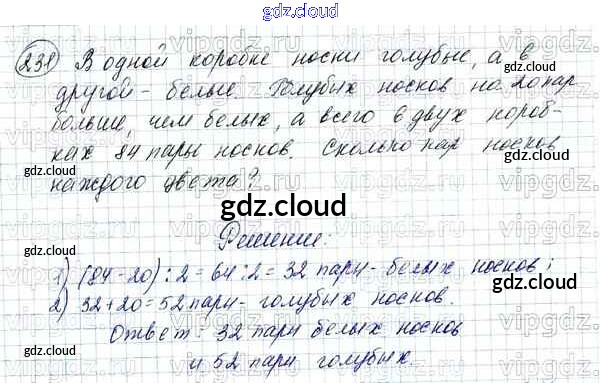 gdz.cloud
231) В одной коробке носки голубые, а в
другой - белые. Голубых носков на 20 пар
больше, чем белых, а всего в двух короб-
ках 84 пары носков. Сколько пар носков
каждого цвета?
gdz.cloud
gdz.cloud
gdz.cloud
Решение:
1) (84-20):2=64:2=32 пары - белых носков;
2) 32+20=52 пары - голубых носков.
Ответ: 32 пары белых носков
и 52 пары голубых.
gdz.cloud
gdz.cloud
gdz.cloud